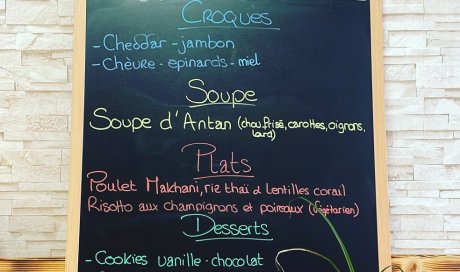 Croques
- Cheddar - jambon
- Chèvre - epinards - miel
Soupe
Soupe d'Antan (chou frisé, carottes, oignons,
lard)
Plats
Poulet Makhani, riz thaï & lentilles corail
Risotto aux champignons et poireaux (végétarien)
Desserts
- Cookies vanille - chocolat